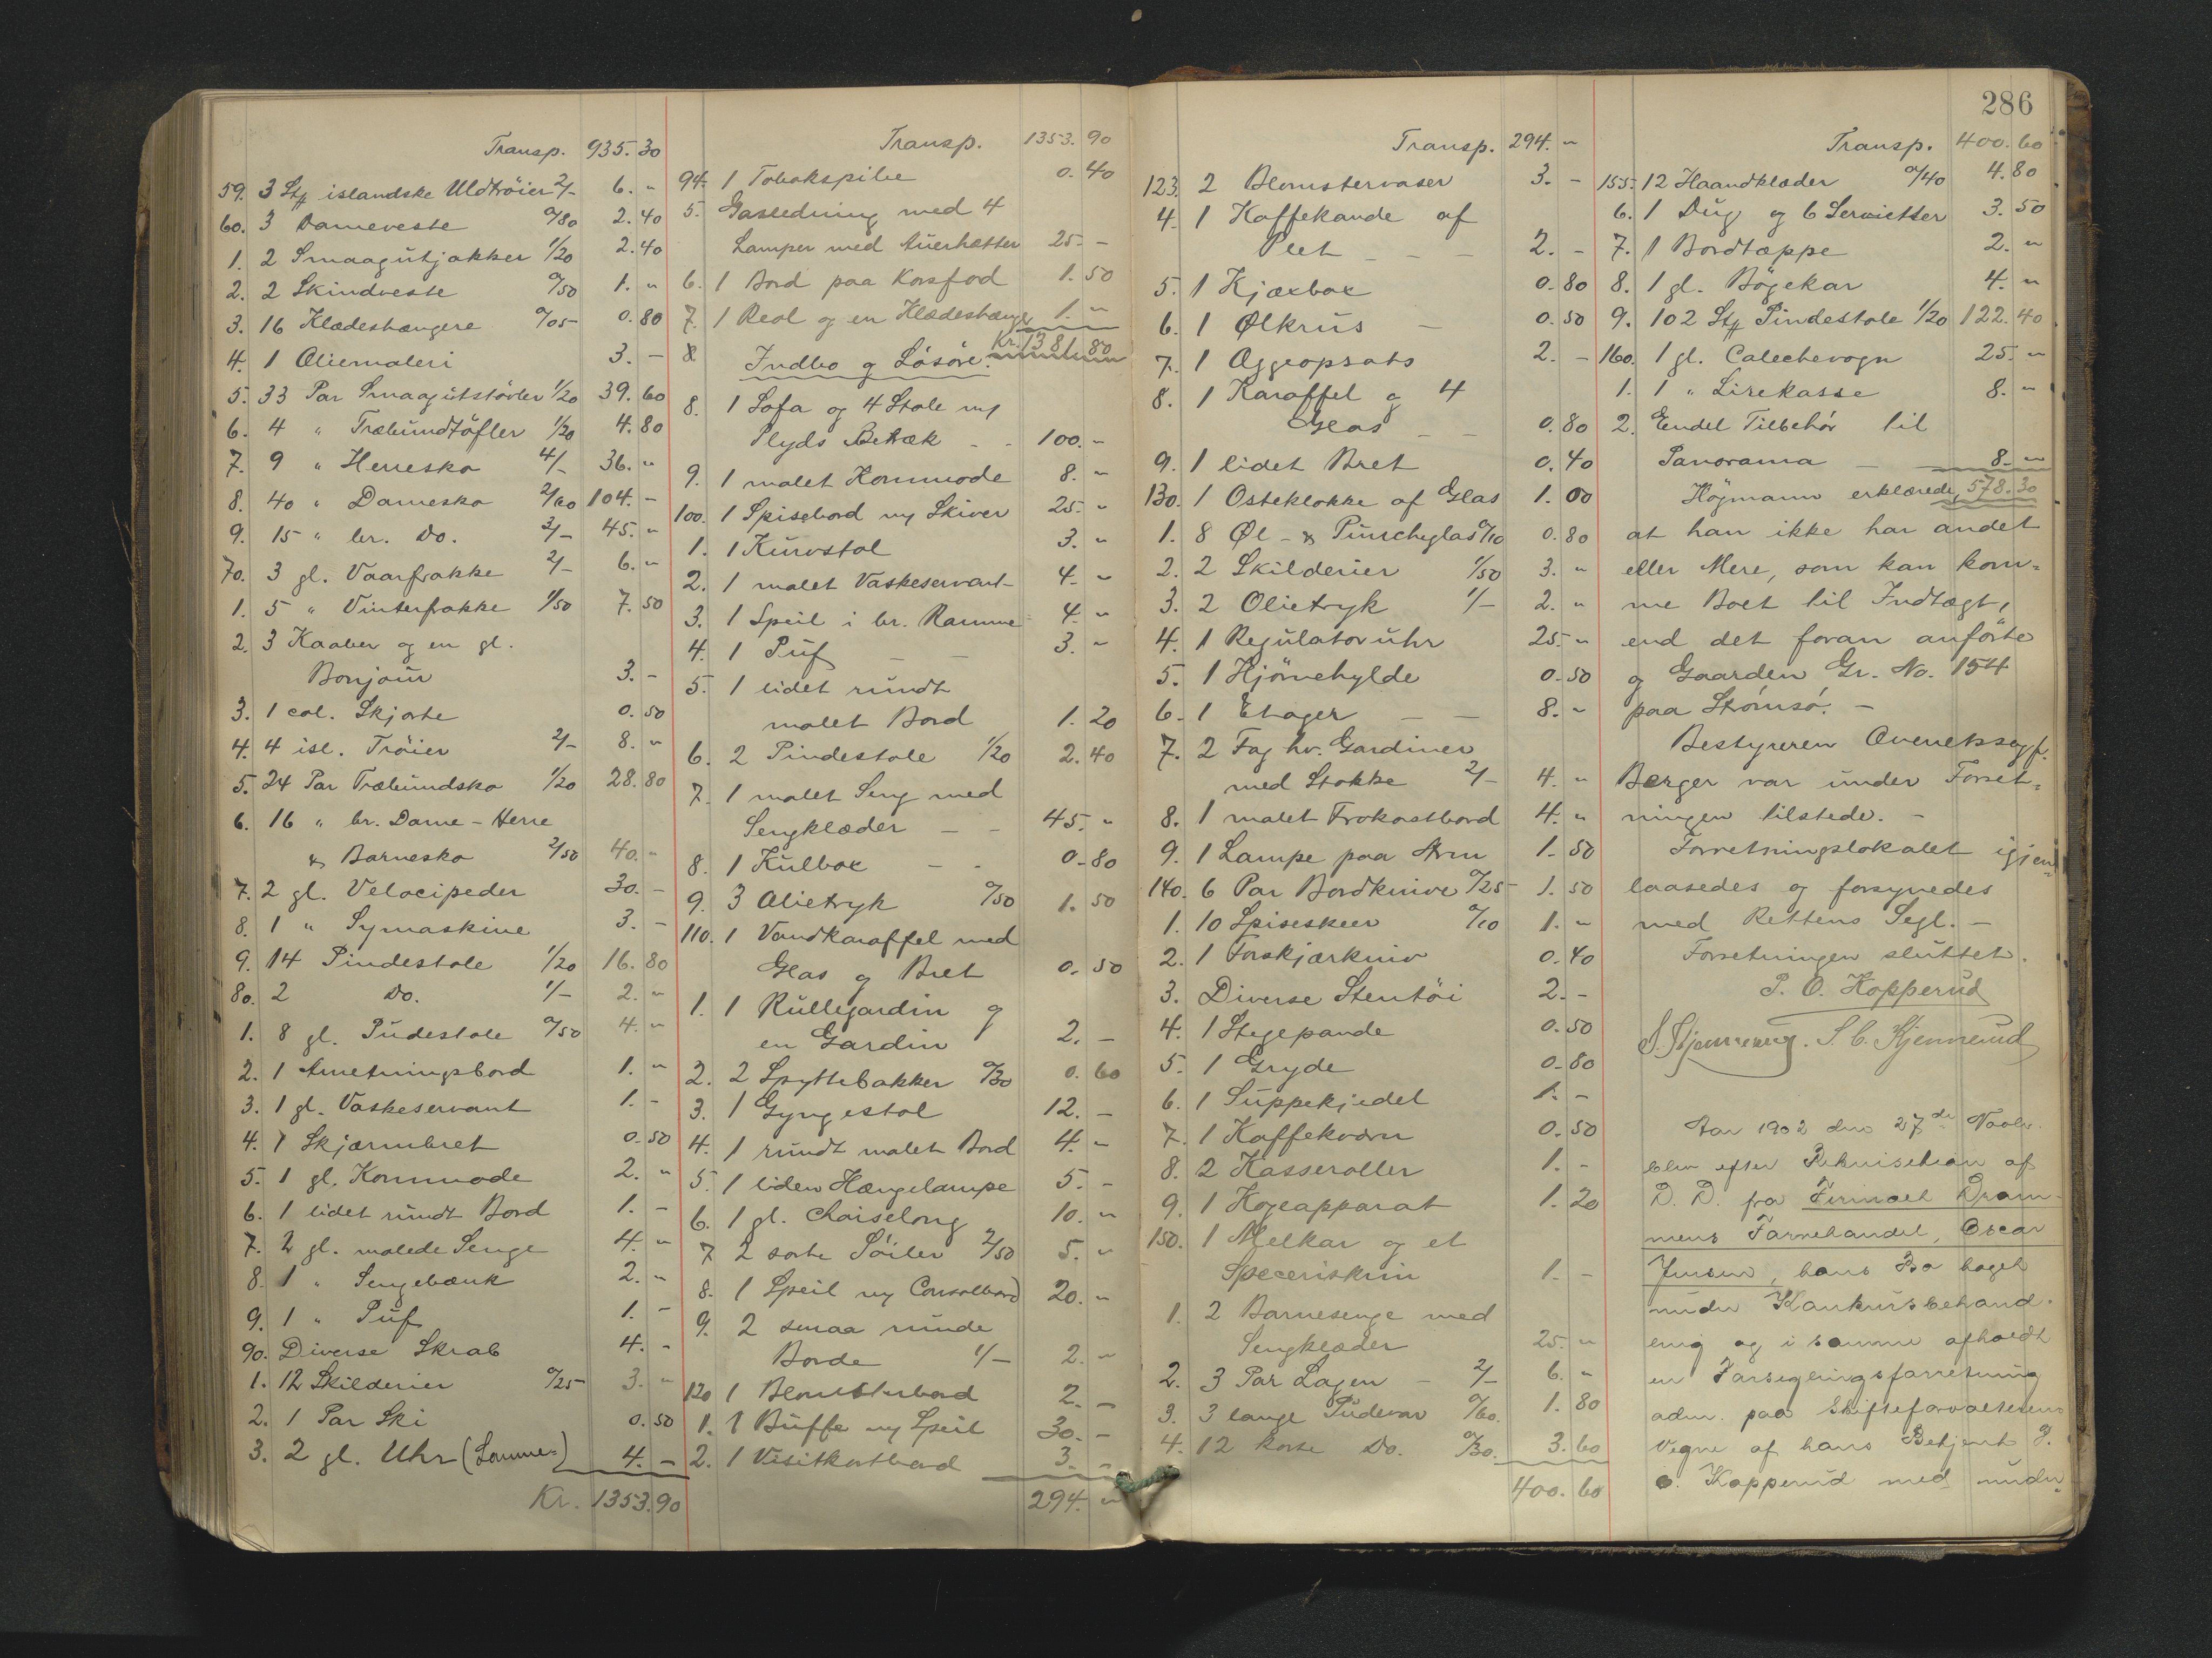 Transp. 935.30
59. 3 Stk islandske Uldtröier 2/- 6. "
60. 3 Dameveste 0/80 2.40
1. 2 Smaagutjakker 1/20 2.40
2. 2 Skindveste 0/50 1. "
3. 16 Klædeshængere 0/05 0.80
4. 1 Oliemaleri 3. -
5. 33 Par Smaagutstövler 1/20 39.60
6. 4 " Træbundtöfler 1/20 4.80
7. 9 " Herresko 4/- 36. "
8. 40 " Damesko 2/60 104. -
9. 15 " br. Do. 3/- 45. "
70. 3 gl. Vaarfrakke 2/- 6. "
1. 5 " Vinterfrakke 1/50 7.50
2. 3 Kaaber og en gl.
Bonjour 3. -
3. 1 col. Skjorte 0.50
4. 4 isl. Tröier 2/- 8. "
5. 24 Par Træbundsko 1/20 28.80
6. 16 " br. Dame - Herre
& Barnesko 2/50 40. -
7. 2 gl. Velocipeder 30. -
8. 1 " Symaskine 3. -
9. 14 Pindestole 1/20 16.80
80. 2 Do. 1/- 2. "
1. 8 gl. Pindestole 0/50 4. "
2. 1 Anretningsbord 1. "
3. 1 gl. Vaskeservant 1. -
4. 1 Skjærmbret 0.50
5. 1 gl. Kommode 2. "
6. 1 lidet rundt Bord 1. -
7. 2 gl. malede Senge 4. "
8. 1 " Sengebænk 2. "
9. 1 " Puf 1. -
90. Diverse Skrab 4. -
1. 12 Skilderier 0/25 3. "
2. 1 Par Ski 0.50
3. 2 gl. Uhr (Lomme-) 4. -
Kr. 1353.90
Transp. 1353.90
94. 1 Tobakspibe 0.40
5. Gasledning med 4
Lamper med Auerhætter 25. -
6. 1 Bord paa Korsfod 1.50
7. 1 Reol og en Klædeshænger 1. "
Kr. 1381.80
8. Indbo og Lösöre.
8. 1 Sofa og 4 Stole m/
Plyds Betræk - - 100. "
9. 1 malet Kommode 8. "
100. 1 Spisebord m/ Skiver 25. "
1. 1 Kurvstol 3. "
2. 1 malet Vaskeservant 4. "
3. 1 Speil i br. Ramme 4. "
4. 1 Puf - - 3. "
5. 1 lidet rundt
malet Bord 1.20
6. 2 Pindestole 1/20 2.40
7. 1 malet Seng med
Sengklæder - - 45. "
8. 1 Kulbox - - 0.80
9. 3 Olietryk 0/50 1.50
110. 1 Vandkaraffel med
Glas og Bret 0.50
1. 1 Rullegardin og
en Gardin 2. -
2. 2 Spyttebakker 0/30 0.60
3. 1 Gyngestol 12. -
4. 1 rundt malet Bord 4. -
5. 1 liden Hængelampe 5. -
6. 1 gl. Chaiselong 10. "
7. 2 sorte Söiler 2/50 5. "
8. 1 Speil m/ Consolbord 20. "
9. 2 smaa runde
Borde 1/- 2. "
120 1 Blomsterbord 2. -
1. 1 Buffe m/ Speil 30. -
2. 1 Visitkortbord 3. -
294. "
Transp. 294. "
123. 2 Blomstervaser 3. -
4. 1 Kaffekande af
Plet - - - 2. -
5. 1 Kjæxbox 0.80
6. 1 Ølkrus - 0.50
7. 1 Oggeopsats 2. -
8. 1 Karaffel og 4
Glas - - 0.80
9. 1 lidet Bret 0.40
130. 1 Osteklokke af Glas 1.00
1. 8 Øl- & Punscheglas 0/10 0.80
2. 2 Skilderier 1/50 3. "
3. 2 Olietryk 1/- 2. "
4. 1 Regulatoruhr 25. "
5. 1 Hjörnehylde 0.50
6. 1 Etager - - 8. "
7. 2 Fag hv. Gardiner
med Stokke 2/- 4. "
8. 1 malet Frokostbord 4. "
9. 1 Lampe paa Arm 1.50
140. 6 Par Bordknive 0/25 1.50
1. 10 Spiseskeer 0/10 1. "
2. 1 Forskjærkniv 0.40
3. Diverse Stentöi 2. -
4. 1 Stegepande 0.50
5. 1 Gryde 0.80
6. 1 Suppekjedel 1. -
7. 1 Kaffekværn 0.50
8. 2 Kasseroller 1. -
9. 1 Kogeapparat 1.20
150. 1 Melkar og et
Speceriskrin 1. -
1. 2 Barnesenge med
Sengklæder 25. "
2. 3 Par Lagen - 2/- 6. "
3. 3 lange Pudevar 0/60. 1.80
4. 12 korte Do. 0/30. 3.60
400.60
286
Transp. 400.60
155. 12 Haandklæder 0/40 4.80
6. 1 Dug og 6 Servietter 3.50
7. 1 Bordtæppe 2. "
8. 1 gl. Bögekar 4. "
9. 102 Stk Pindestole 1/20 122.40
160. 1 gl. Calechevogn 25. "
1. 1 " Lirekasse 8. "
2. Endel Tilbehör til
Panorama - - 8. "
Högmann erklærede, 578.30
at han ikke har andet
eller Mere, som kan kom-
me Boet til Indtægt,
end det foran anförte
og Gaarden Gr. No. 154
paa Strömsö. -
Bestyreren Overretssagf.
Berger var under Forret-
ningen tilstede. -
Forretningslokalet igjen-
laasedes og forsynedes
med Rettens Segl. -
Forretningen sluttet.
P. O. Kopperud
S. C. Stjernerud
Aar 1902 den 27de Novbr.
blev efter Rekvisition af
D. D. fra Firmaet Dram-
mens Farvehandel, Oscar
Jensen, hans Bo taget
under Konkursbehand-
ling og i samme afholdt
en Forseglingsforretning
adm. paa Skifteforvalterens
Vegne af hans Betjent P.
O. Kopperud med under-